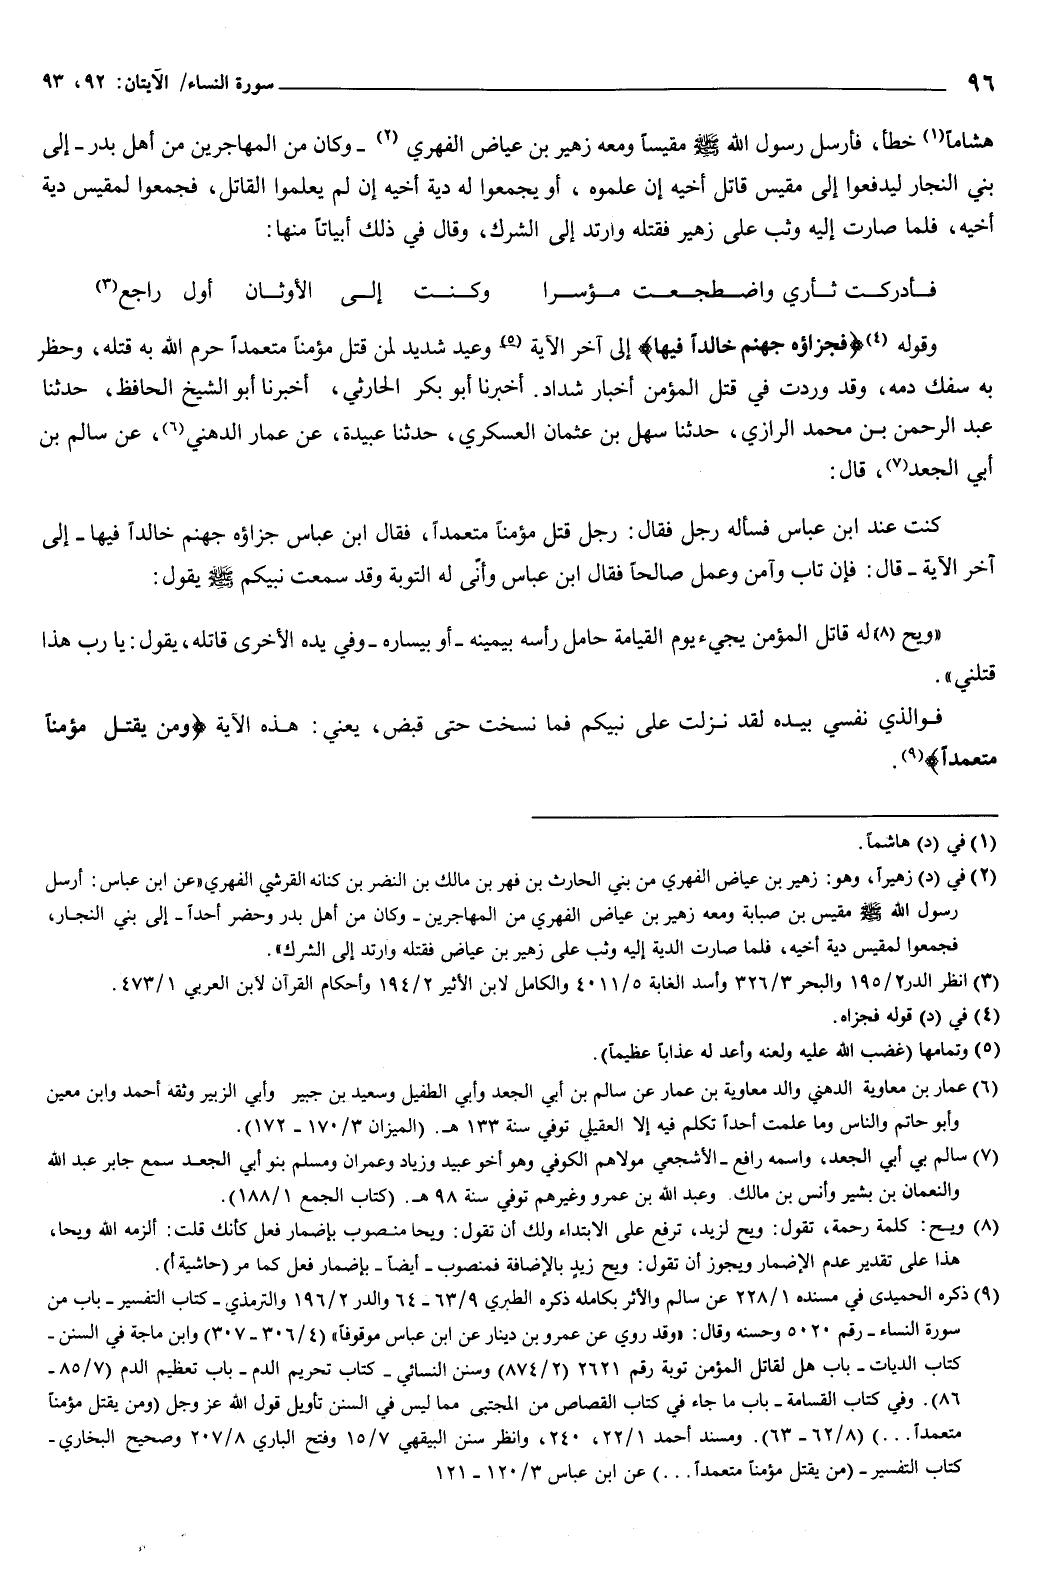 ٩٦ سورة النساء/ الآيتان: ٩٢، ٩٣
هشاماً(١) خطأ، فأرسل رسول الله ﷺ مقيساً ومعه زهير بن عياض الفهري (٢) ـ وكان من المهاجرين من أهل بدر ـ إلى
بني النجار ليدفعوا إلى مقيس قاتل أخيه إن علموه ، أو يجمعوا له دية أخيه إن لم يعلموا القاتل، فجمعوا لمقيس دية
أخيه، فلما صارت إليه وثب على زهير فقتله وارتد إلى الشرك، وقال في ذلك أبياتاً منها:
فـأدركـت ثـأري واضـطجـعـت مـؤسـرا وكـنـت إلـى الأوثـان أول راجع(٣)
وقوله (٤) ﴿فجزاؤه جهنم خالداً فيها﴾ إلى آخر الآية (٥) وعيد شديد لمن قتل مؤمناً متعمداً حرم الله به قتله، وحظر
به سفك دمه، وقد وردت في قتل المؤمن أخبار شداد. أخبرنا أبو بكر الحارثي، أخبرنا أبو الشيخ الحافظ، حدثنا
عبد الرحمن بـن محمد الرازي، حدثنا سهل بن عثمان العسكري، حدثنا عبيدة، عن عمار الدهني(٦)، عن سالم بن
أبي الجعد(٧)، قال:
كنت عند ابن عباس فسأله رجل فقال: رجل قتل مؤمناً متعمداً، فقال ابن عباس جزاؤه جهنم خالداً فيها ـ إلى
آخر الآية ـ قال: فإن تاب وآمن وعمل صالحاً فقال ابن عباس وأنّى له التوبة وقد سمعت نبيكم ﷺ يقول:
«ويح (٨) له قاتل المؤمن يجيء يوم القيامة حامل رأسه بيمينه ـ أو بيساره ـ وفي يده الأخرى قاتله، يقول: يا رب هذا
قتلني».
فـوالذي نفسي بيـده لقد نـزلت على نبيكم فما نسخت حتى قبض، يعني: هـذه الآية ﴿ومن يقتـل مؤمناً
متعمداً﴾(٩).
(١) في (د) هاشماً.
(٢) في (د) زهيراً، وهو: زهير بن عياض الفهري من بني الحارث بن فهر بن مالك بن النضر بن كنانه القرشي الفهري «عن ابن عباس: أرسل
رسول الله ﷺ مقيس بن صبابة ومعه زهير بن عياض الفهري من المهاجرين ـ وكان من أهل بدر وحضر أحداً ـ إلى بني النجـار،
فجمعوا لمقيس دية أخيه، فلما صارت الدية إليه وثب على زهير بن عياض فقتله وارتد إلى الشرك».
(٣) انظر الدر١٩٥/٢ والبحر ٣٢٦/٣ وأسد الغابة ٤٠١١/٥ والكامل لابن الأثير ١٩٤/٢ وأحكام القرآن لابن العربي ٤٧٣/١.
(٤) في (د) قوله فجزاه.
(٥) وتمامها (غضب الله عليه ولعنه وأعد له عذاباً عظيماً).
(٦) عمار بن معاوية الدهني والد معاوية بن عمار عن سالم بن أبي الجعد وأبي الطفيل وسعيد بن جبير وأبي الزبير وثقه أحمد وابن معين
وأبو حاتم والناس وما علمت أحداً تكلم فيه إلا العقيلي توفي سنة ١٣٣ هـ. (الميزان ١٧٠/٣ ـ ١٧٢).
(٧) سالم بي أبي الجعد، واسمه رافع ـ الأشجعي مولاهم الكوفي وهو أخو عبيد وزياد وعمران ومسلم بنو أبي الجعـد سمع جابر عبد الله
والنعمان بن بشير وأنس بن مالك. وعبد الله بن عمرو وغيرهم توفي سنة ٩٨ هـ. (كتاب الجمع ١٨٨/١).
(٨) ويـح: كلمة رحمة، تقول: ويح لزيد، ترفع على الابتداء ولك أن تقول: ويحا منـصوب بإضمار فعل كأنك قلت: ألزمه الله ويحا،
هذا على تقدير عدم الإضمار ويجوز أن تقول: ويح زيدٍ بالإضافة فمنصوب ـ أيضاً ـ بإضمار فعل كما مر (حاشية أ).
(٩) ذكره الحميدى في مسنده ٢٢٨/١ عن سالم والأثر بكامله ذكره الطبري ٦٣/٩ ـ ٦٤ والدر ١٩٦/٢ والترمذي ـ كتاب التفسير ـ باب من
سورة النساء ـ رقم ٥٠٢٠ وحسنه وقال: «وقد روي عن عمرو بن دينار عن ابن عباس موقوفاً» (٣٠٦/٤ ـ ٣٠٧) وابن ماجة في السنن ـ
كتاب الديات ـ باب هل لقاتل المؤمن توبة رقم ٢٦٢١ (٨٧٤/٢) وسنن النسائي ـ كتاب تحريم الدم ـ باب تعظيم الدم (٨٥/٧ ـ
٨٦). وفي كتاب القسامة ـ باب ما جاء في كتاب القصاص من المجتبى مما ليس في السنن تأويل قول الله عز وجل (ومن يقتل مؤمناً
متعمداً...) (٦٢/٨ ـ ٦٣). ومسند أحمد ٢٢/١، ٢٤٠، وانظر سنن البيقهي ١٥/٧ وفتح الباري ٢٠٧/٨ وصحيح البخاري ـ
كتاب التفسير ـ (من يقتل مؤمناً متعمداً...) عن ابن عباس ١٢٠/٣ ـ ١٢١